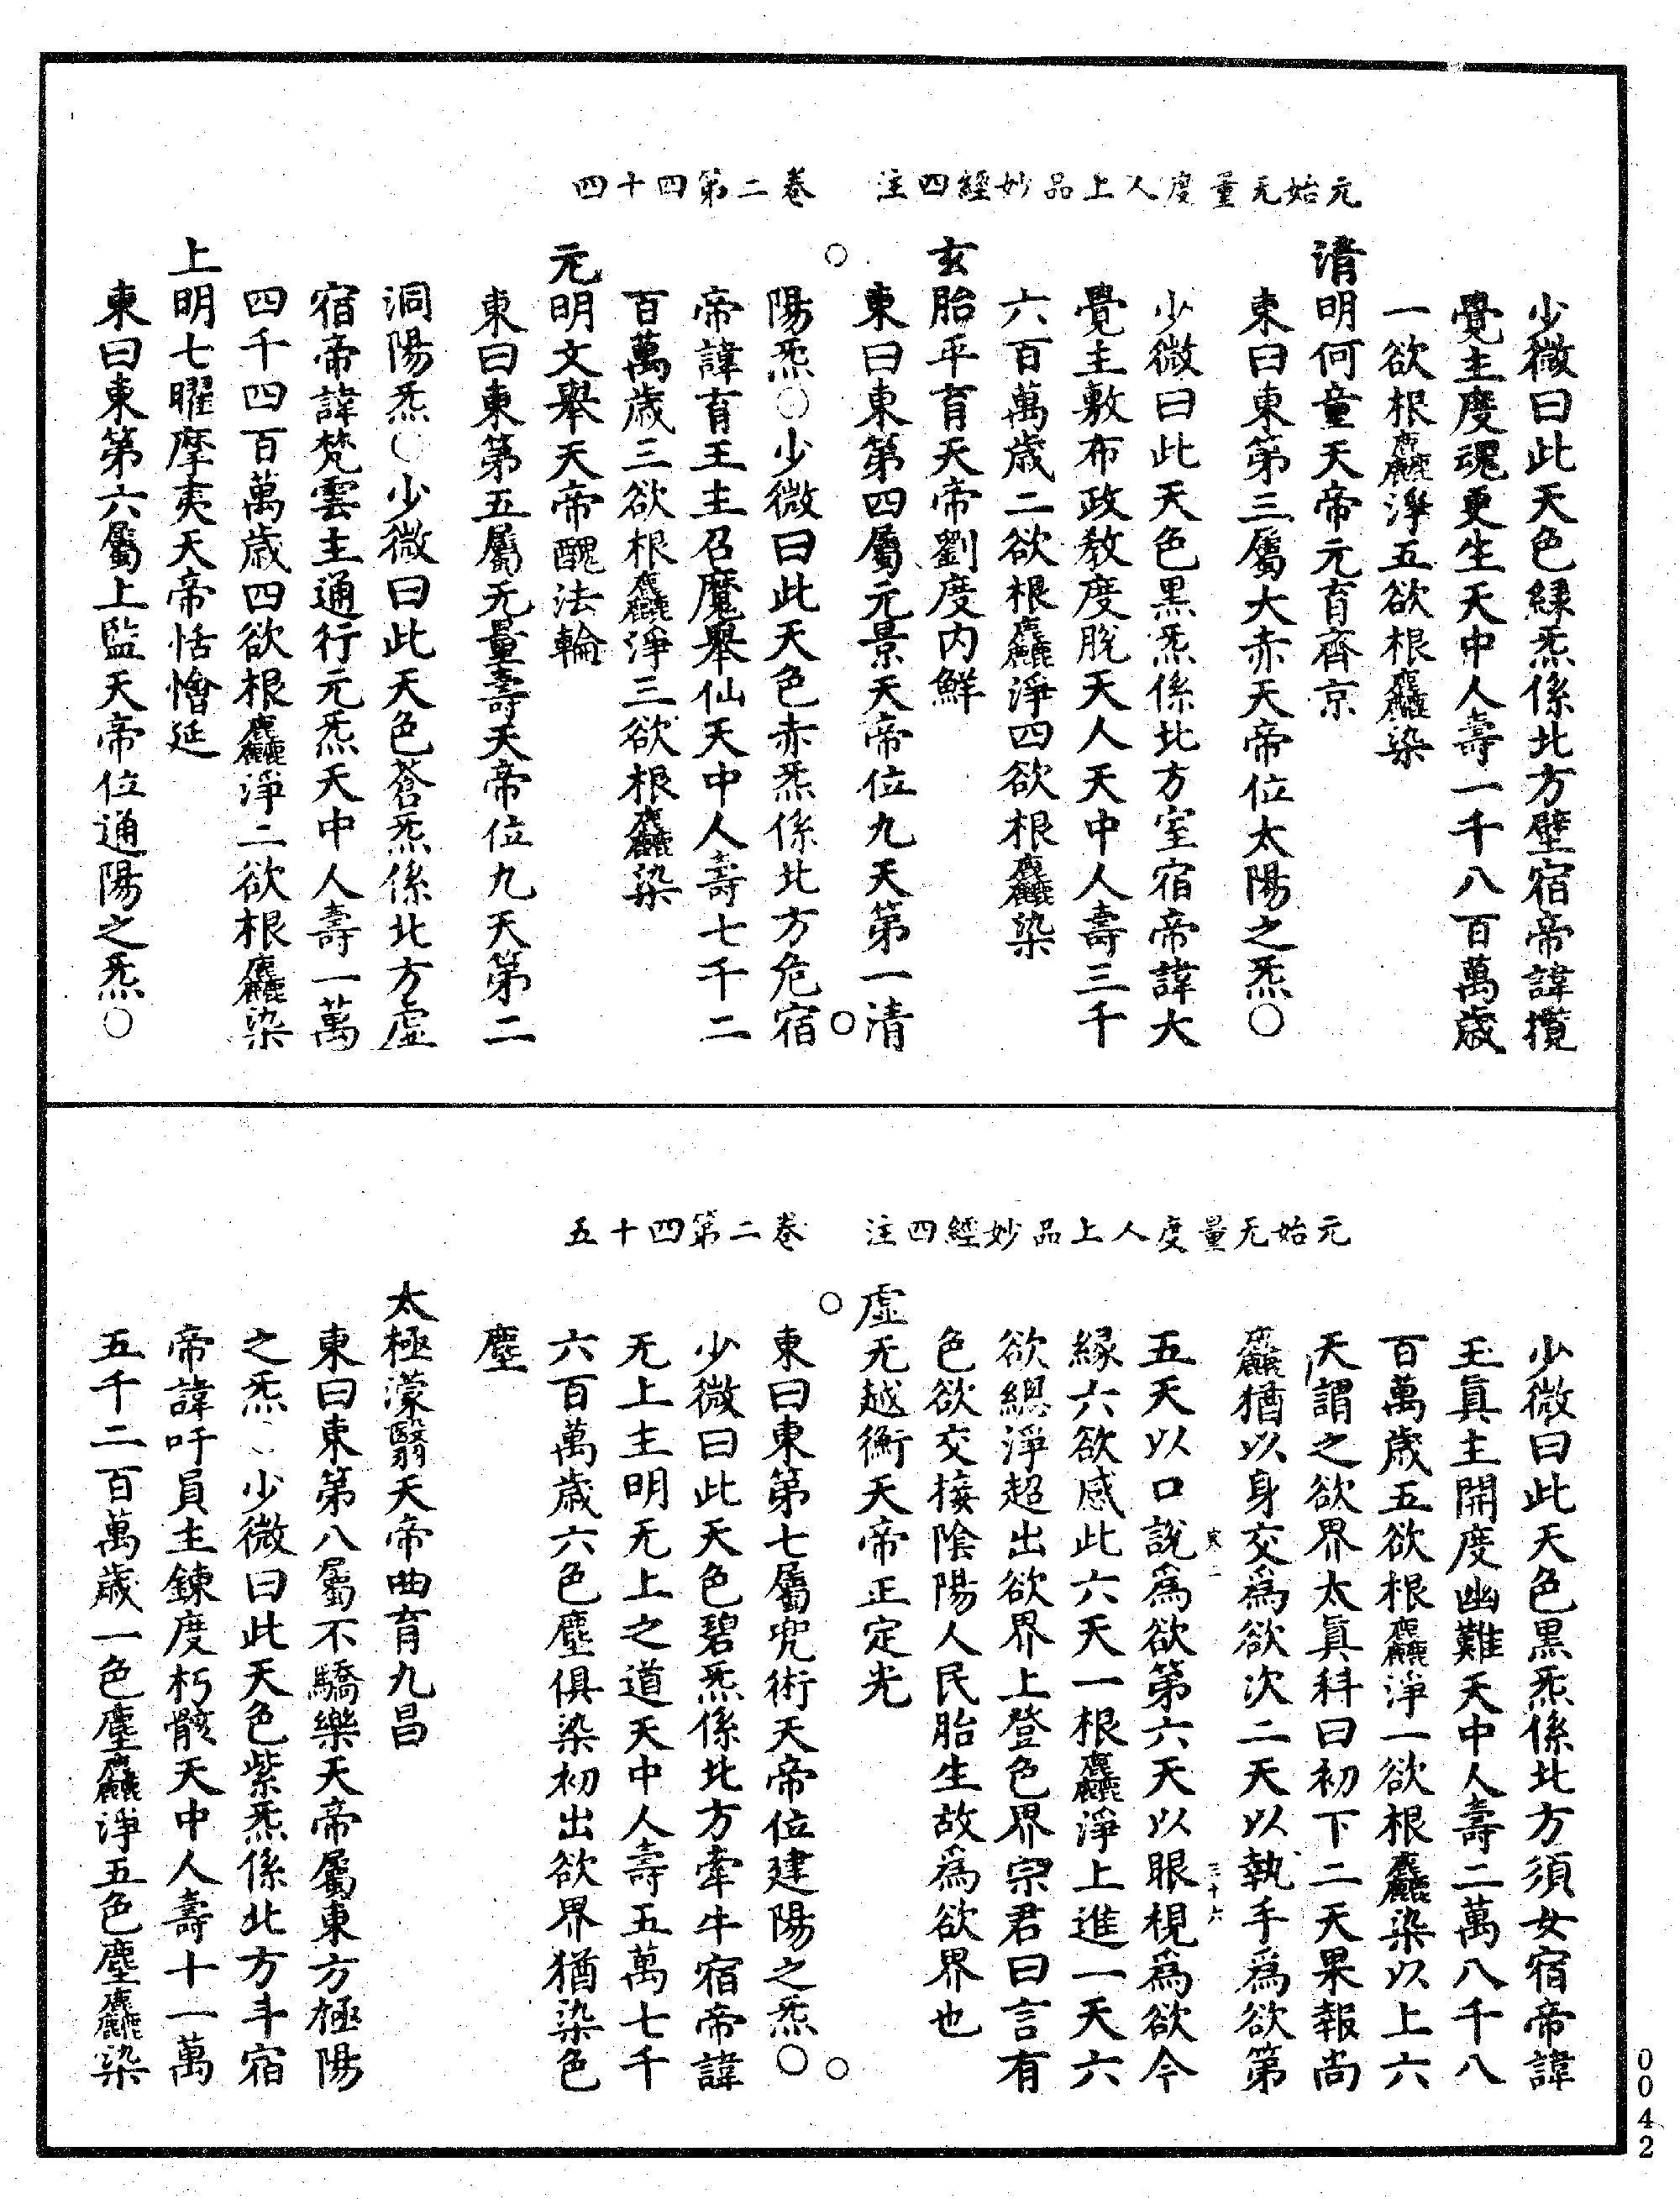 元始无量度人上品妙經四注　卷二第四十四
少微曰此天色綠炁係北方壁宿帝諱攬
覺主度魂更生天中人壽一千八百萬歲
一欲根麤淨五欲根麤染
清明何童天帝元育齊京
東曰東第三屬大赤天帝位太陽之炁○
少微曰此天色黑炁係北方室宿帝諱大
覺主敷布政教度脫天人天中人壽三千
六百萬歲二欲根麤淨四欲根麤染
玄胎平育天帝劉度內鮮
東曰東第四屬元景天帝位九天第一清
陽炁○少微曰此天色赤炁係北方危宿
帝諱育王主召魔舉仙天中人壽七千二
百萬歲三欲根麤淨三欲根麤染
元明文舉天帝醜法輪
東曰東第五屬无量壽天帝位九天第二
洞陽炁○少微曰此天色蒼炁係北方虛
宿帝諱梵雲主通行元炁天中人壽一萬
四千四百萬歲四欲根麤淨二欲根麤染
上明七曜摩夷天帝恬懀延
東曰東第六屬上監天帝位通陽之炁○
元始无量度人上品妙經四注　卷二第四十五
少微曰此天色黑炁係北方須女宿帝諱
玉眞主開度幽難天中人壽二萬八千八
百萬歲五欲根麤淨一欲根麤染以上六
天謂之欲界太眞科曰初下二天果報尚
麤猶以身交爲欲次二天以執手爲欲第
五天以口說爲欲第六天以眼視爲欲今
緣六欲感此六天一根麤淨上進一天六
欲總淨超出欲界上登色界宗君曰言有
色欲交接陰陽人民胎生故爲欲界也
虛无越衡天帝正定光
東曰東第七屬兜術天帝位建陽之炁○
少微曰此天色碧炁係北方牽牛宿帝諱
无上主明无上之道天中人壽五萬七千
六百萬歲六色塵俱染初出欲界猶染色
塵
太極濛翳天帝曲育九昌
東曰東第八屬不驕樂天帝屬東方極陽
之炁○少微曰此天色紫炁係北方斗宿
帝諱吁員主鍊度朽骸天中人壽十一萬
五千二百萬歲一色塵麤淨五色塵麤染
三十六
0042